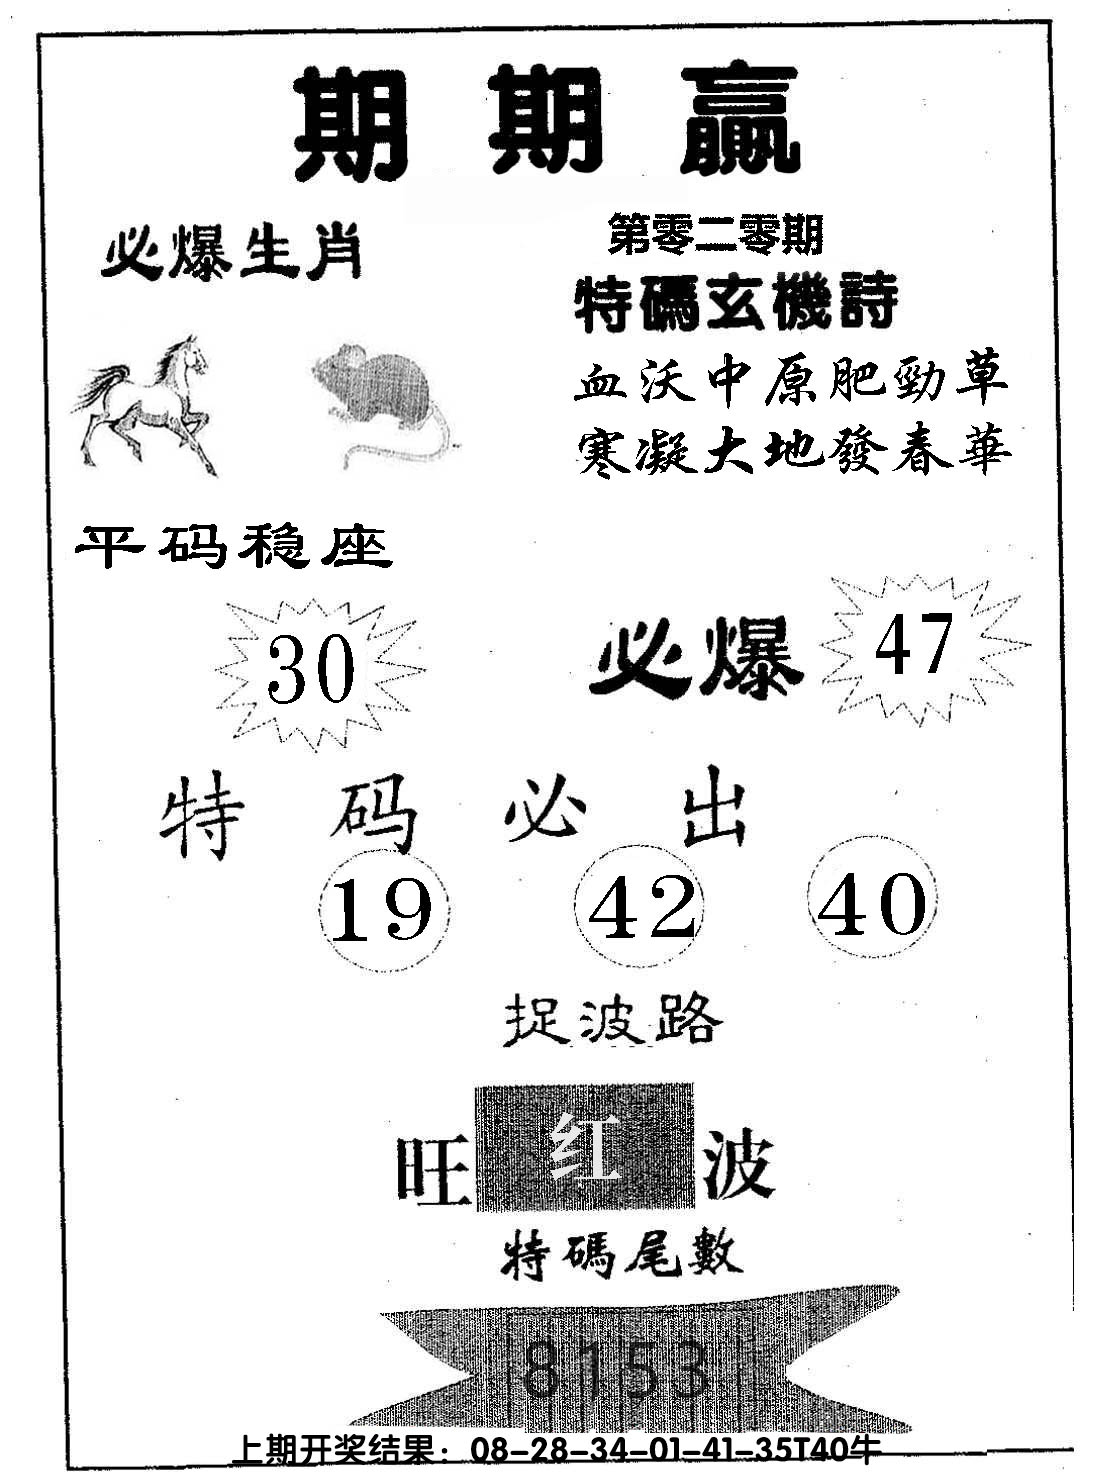 期期贏
必爆生肖
第零二零期
特碼玄機詩
血沃中原肥勁草
寒凝大地發春華
平码稳座
30
必爆
47
特码必出
19 42 40
捉波路
旺红波
特碼尾數
8153
上期开奖结果：08-28-34-01-41-35T40牛